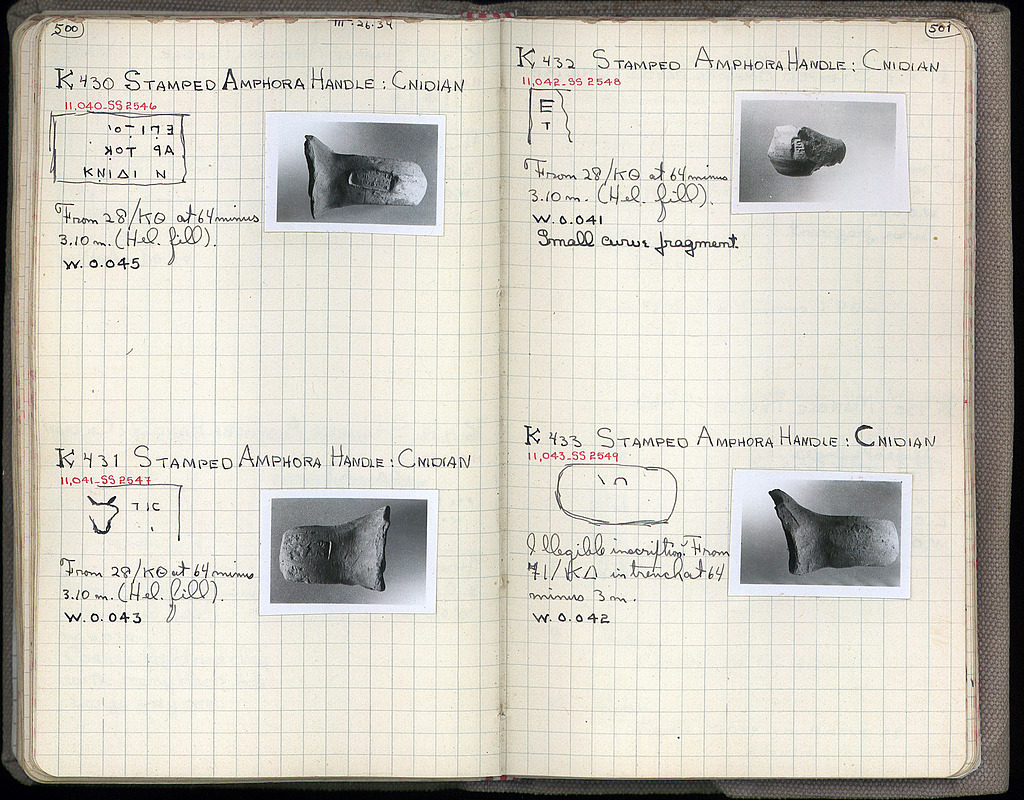 500
III·26·34
K 430 STAMPED AMPHORA HANDLE : CNIDIAN
11,040_SS 2546
From 28/ΚΘ at 64 minus
3.10 m. (Hel. fill).
W. 0.045
K 431 STAMPED AMPHORA HANDLE : CNIDIAN
11,041_SS 2547
From 28/ΚΘ at 64 minus
3.10 m. (Hel. fill).
W. 0.043
501
K 432 STAMPED AMPHORA HANDLE : CNIDIAN
11,042_SS 2548
Ε
Τ
From 28/ΚΘ at 64 minus
3.10 m. (Hel. fill).
W. 0.041
Small curve fragment.
K 433 STAMPED AMPHORA HANDLE : CNIDIAN
11,043_SS 2549
Illegible inscription. From
71/ΚΔ in trench at 64
minus 3 m.
W. 0.042